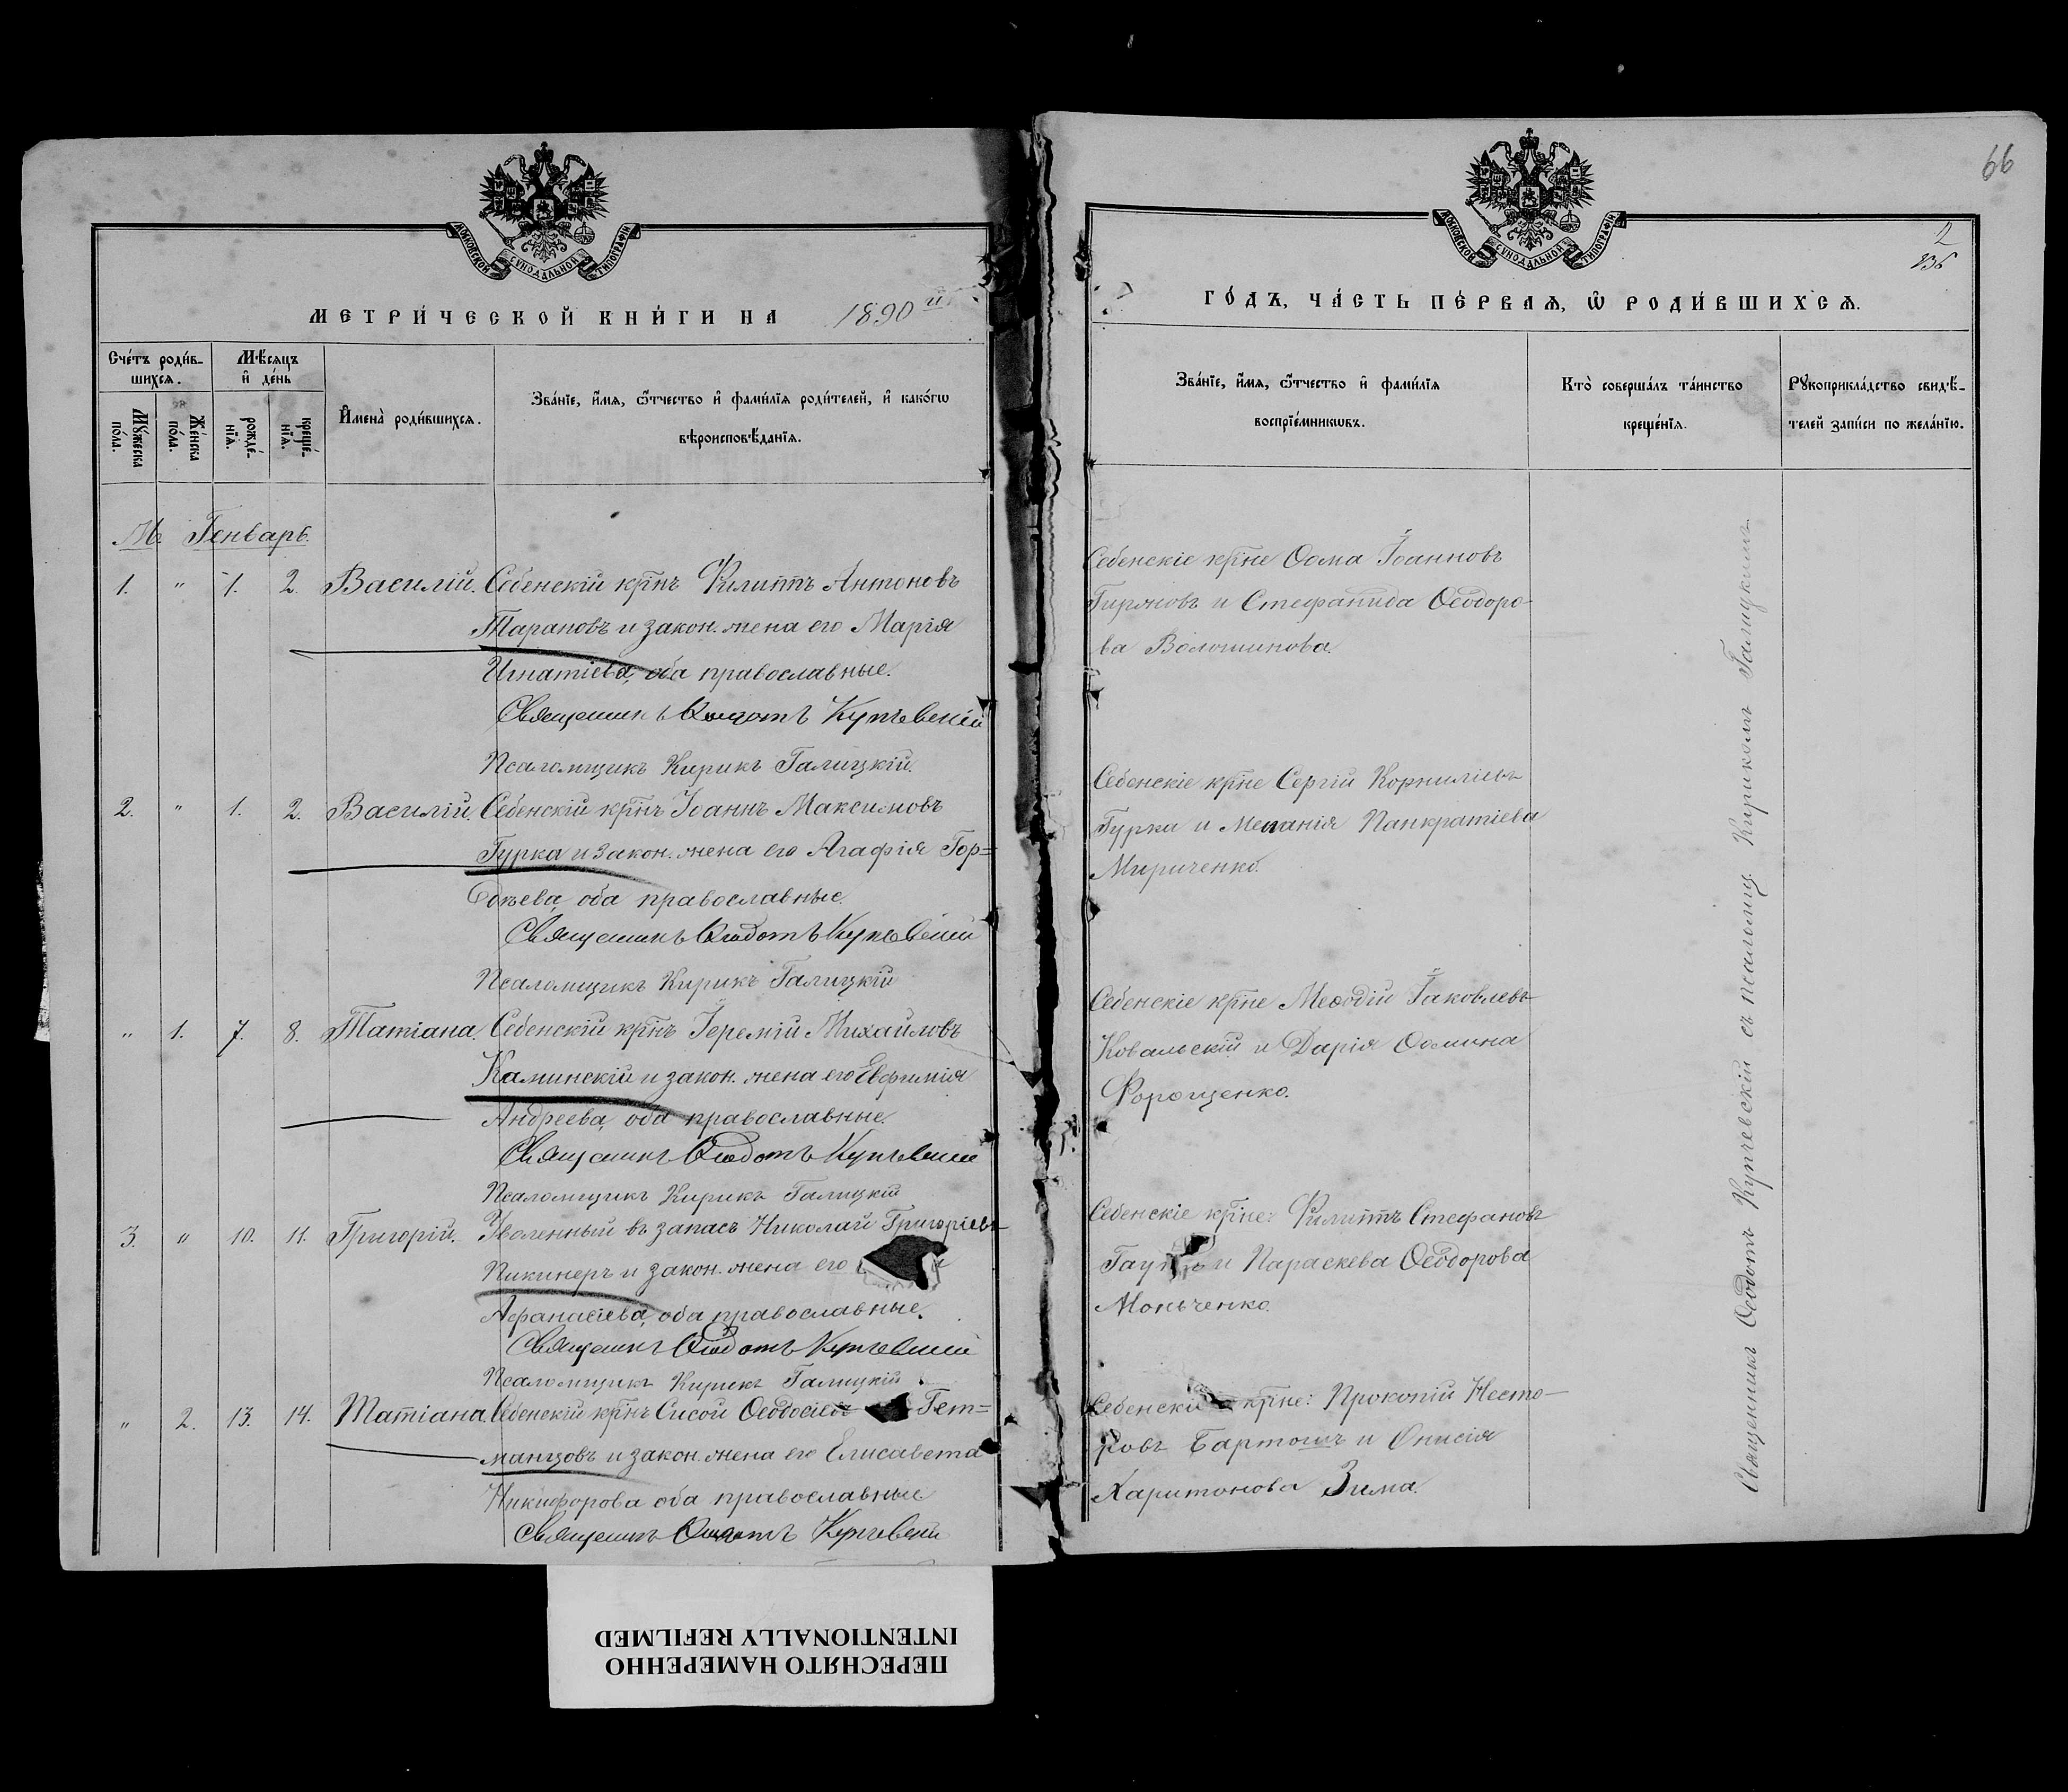 МОСКОВСКОЙ СѴНОДАЛЬНОЙ ТИПОГРАФІИ
МЕТРИ́ЧЕСКОЙ КНИ́ГИ НА 1890й
Сче́тъ роди́в-
шихсѧ.
Мѣ́сѧцъ
и҆ де́нь
Мꙋ́жеска
по́ла.
Же́нска
по́ла.
рожде́-
нїѧ.
креще́-
нїѧ.
И҆мена̀ роди́вшихсѧ.
Зва́нїе, и҆́мѧ, ѻ҆́тчество и҆ фами́лїѧ роди́телей, и҆ како́гѡ
вѣроисповѣ́данїѧ.
М. Генварь.
1. " 1. 2. Василій. Себенскій кр͞нъ Филиппъ Антоновъ
Тарановъ и закон. жена его Марія
Игнатіева, оба православные.
Священникъ Ѳеодотъ Купчевскій
Псаломщикъ Кирикъ Галицкій.
2. " 1. 2. Василій. Себенскій кр͞нъ Іоаннъ Максимовъ
Гурка и закон. жена его Агафія Гор=
оба православные.
Священникъ Ѳеодотъ Купчевскій
Псаломщикъ Кирикъ Галицкій
" 1. 7. 8. Татіана. Себенскій кр͞нъ Іеремій Михайловъ
Каминскій и закон. жена его Евфимія
Андреева, оба православные.
Священникъ Ѳеодотъ Купчевскій
Псаломщикъ Кирикъ Галицкій
3. " 10. 11. Григорій. Уволенный въ запасъ Николай Григоріевъ
Пикинеръ и закон. жена его
Афанасіева, оба православные.
Священникъ Ѳеодотъ Купчевскій
Псаломщикъ Кирикъ Галицкій
" 2. 13. 14. Татіана. Себенскій кр͞нъ Сисой Ѳеодосіевъ Гет=
манцовъ и закон. жена его Елисавета
Никифорова оба православные
Священникъ Ѳеодотъ Купчевскій
66
2
МОСКОВСКОЙ СѴНОДАЛЬНОЙ ТИПОГРАФІИ
ГО́ДЪ, ЧА́СТЬ ПЕ́РВАѦ, Ѽ РОДИ́ВШИХСѦ.
Зва́нїе, и҆́мѧ, ѻ҆́тчество и҆ фами́лїѧ
воспрїе́мникѡвъ.
Кто̀ соверша́лъ та́инство
креще́нїѧ.
Рꙋкоприкла́дство свидѣ́-
телей за́писи по жела́нїю.
Себенскіе кр͞не Ѳома Іоанновъ
Гироновъ и Стефанида Ѳеодоро-
ва Волошинова.
Себенскіе кр͞не Сергій Корниліевъ
Гурка и Меланія Панкратіева
Мириченко.
Себенскіе кр͞не Меѳодій Іаковлевъ
Ковальскій и Дарія Ѳомина
Форощенко.
Себенскіе кр͞не: Филиппъ Стефановъ
и Параскева Ѳеодорова
Моньченко.
Себенскі кр͞не: Прокопій Несто-
ровъ Бартошъ и Онисія
Харитонова Зима.
Священникъ Ѳеодотъ Купчевскій съ псаломщ. Кирикомъ Галицкимъ.
ПЕРЕСНЯТО НАМЕРЕННО
INTENTIONALLY REFILMED